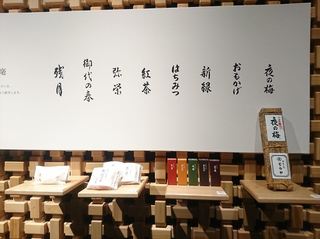 夜の梅
おもかげ
新緑
はちみつ
紅茶
弥栄
御代の春
残月
夜の梅